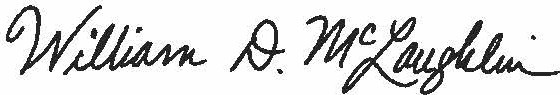 William D. McLaughlin